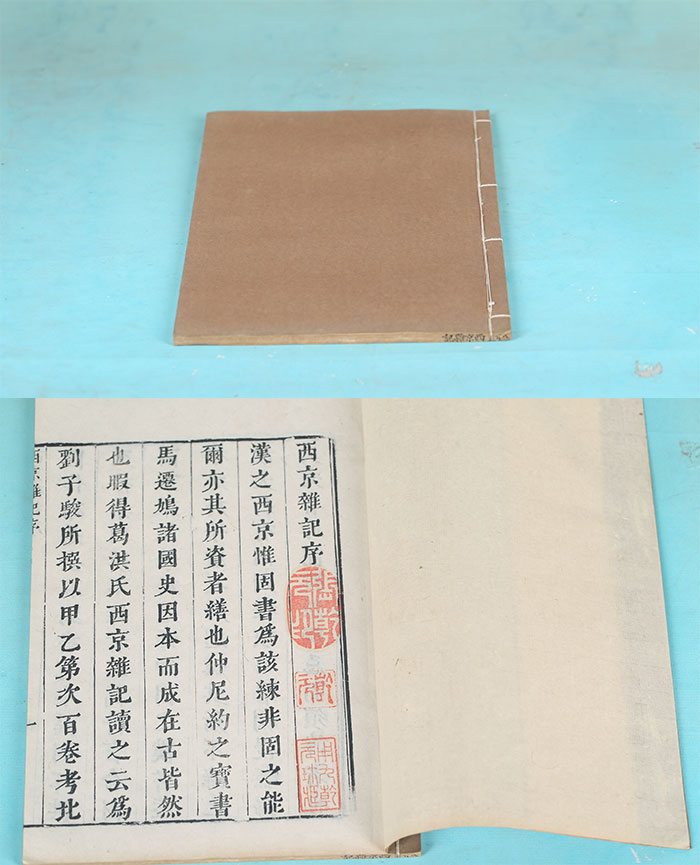 西京雜記序
漢之西京惟固書爲該練非固之能
爾亦其所資者繕也仲尼約之寶書
馬遷鳩諸國史因本而成在古皆然
也暇得葛洪氏西京雜記讀之云爲
劉子駿所撰以甲乙第次百卷考比
西京雜記序
一